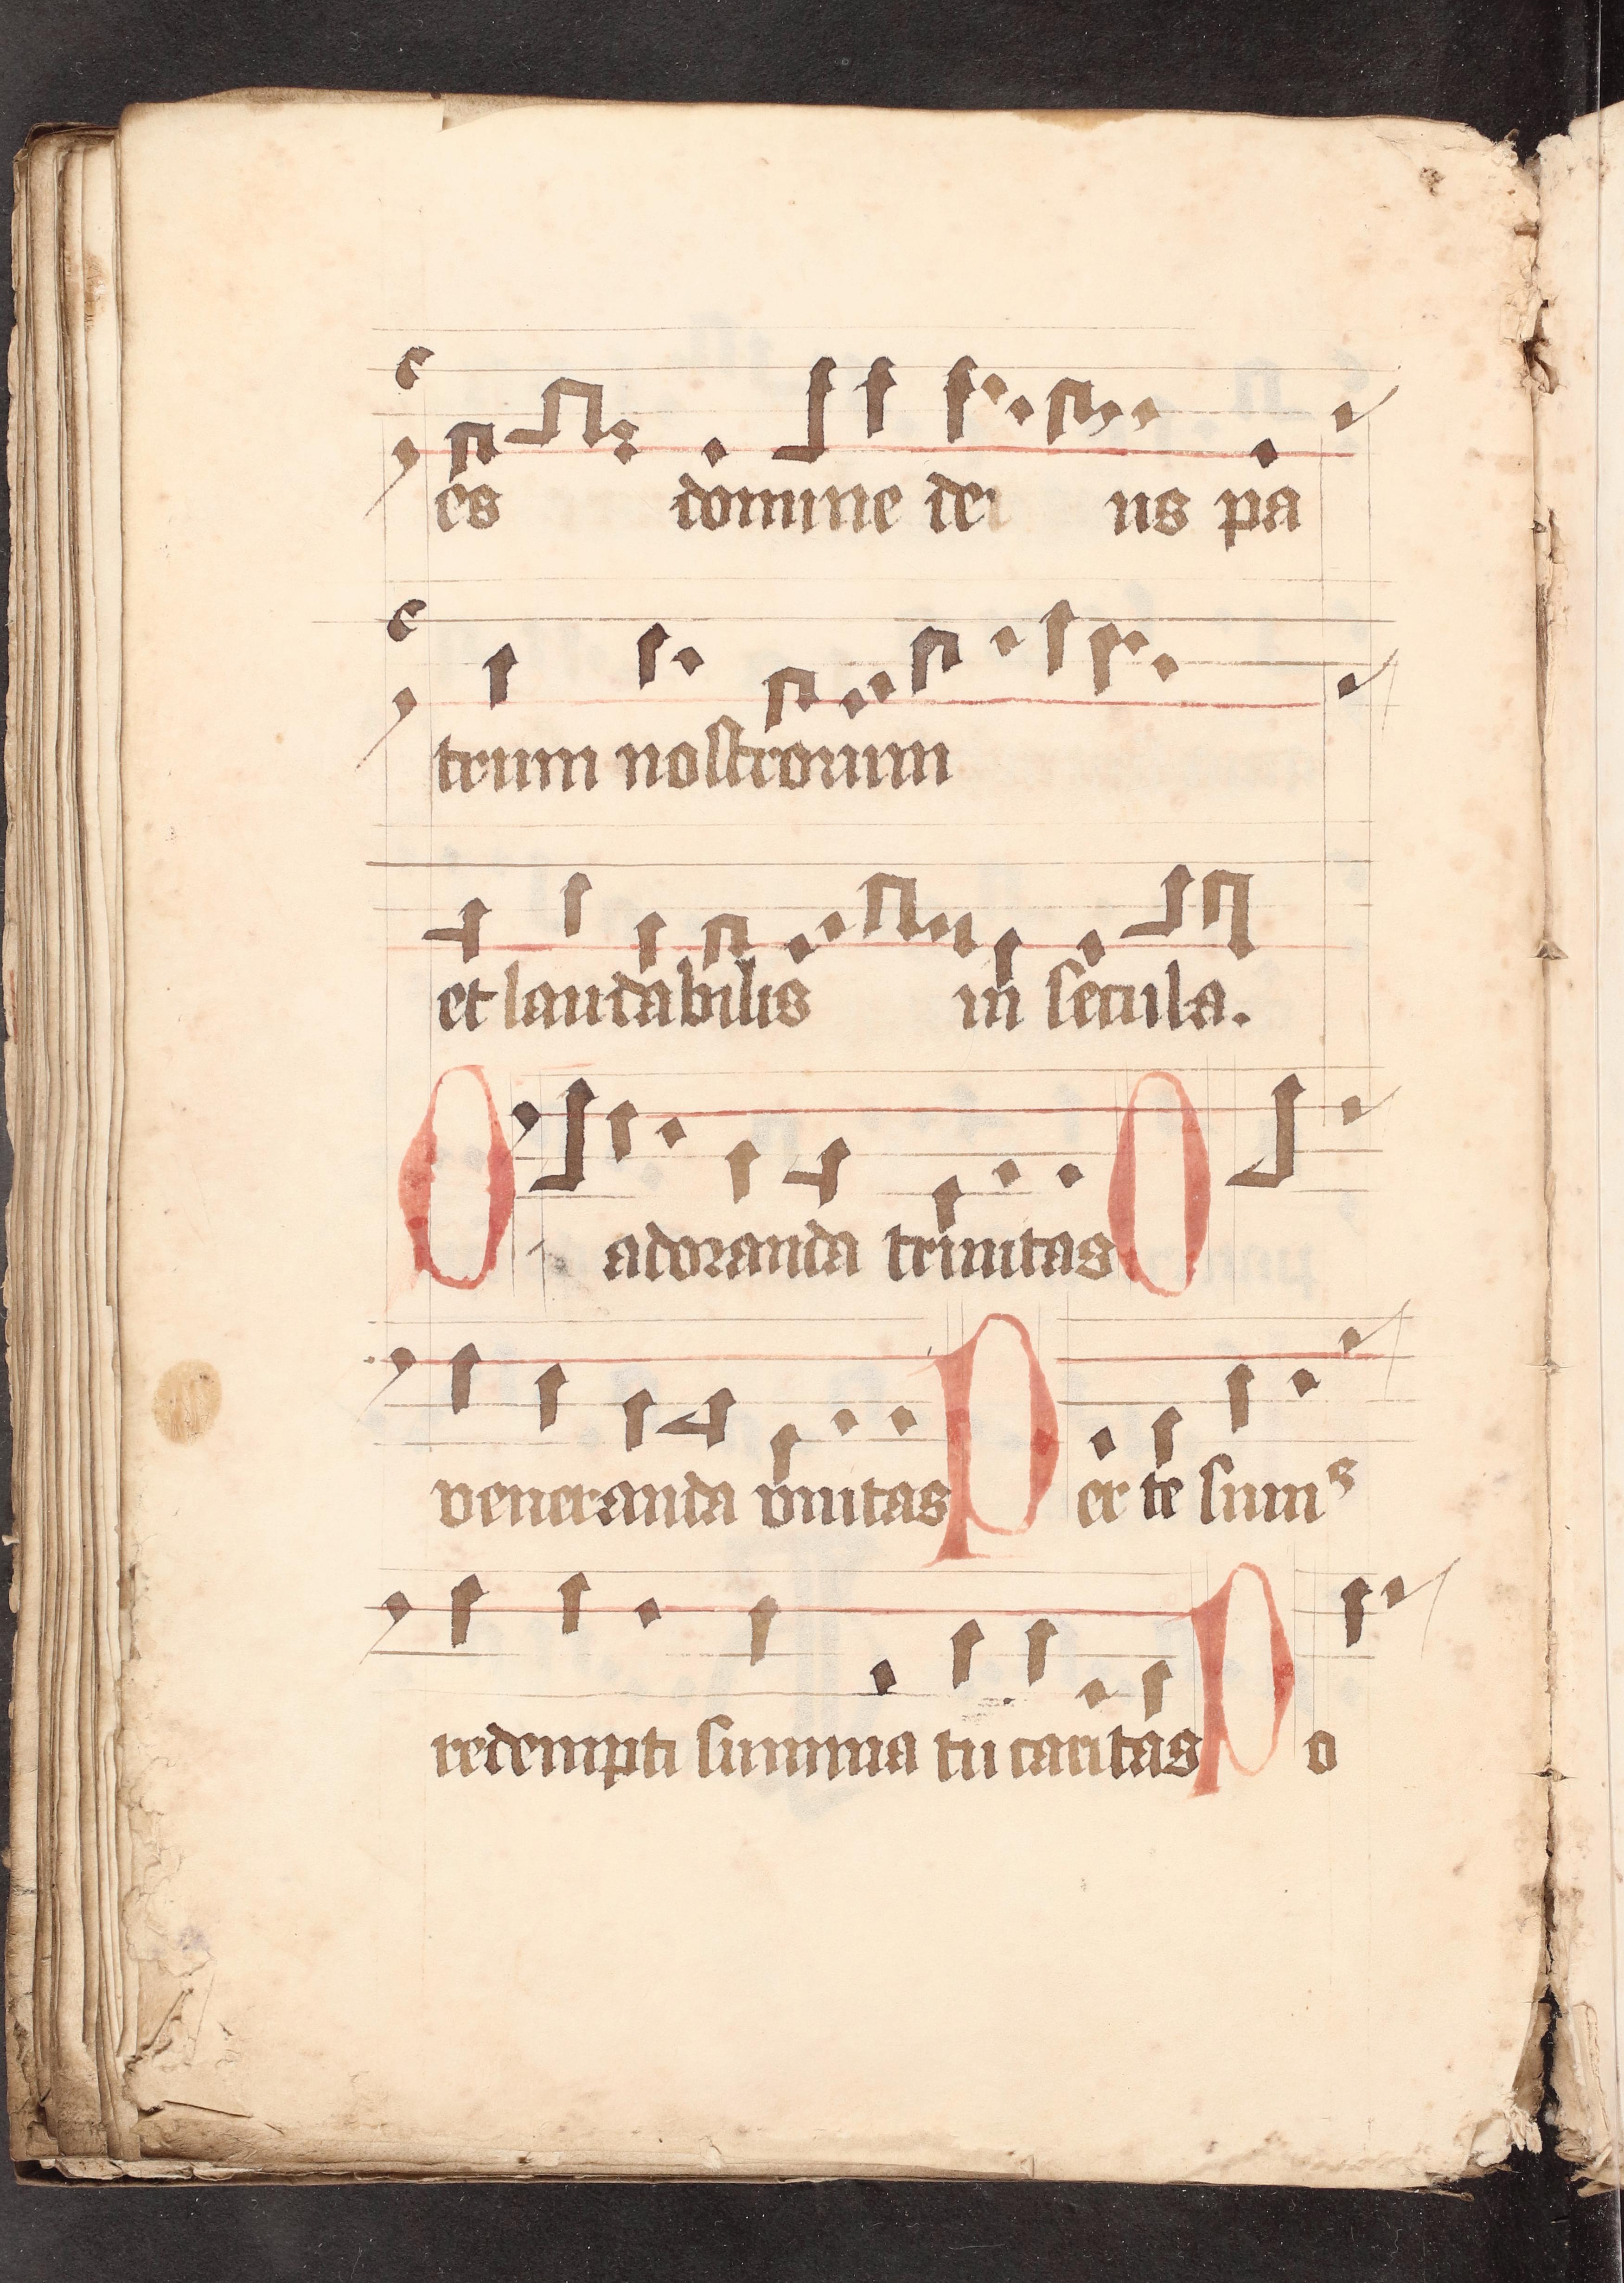 es domine deus pa
trum nostrorum
et laudabilis in secula.
O adoranda trinitas O
veneranda vnitas Per te sumꝰ
redempti summa tu caritas Po